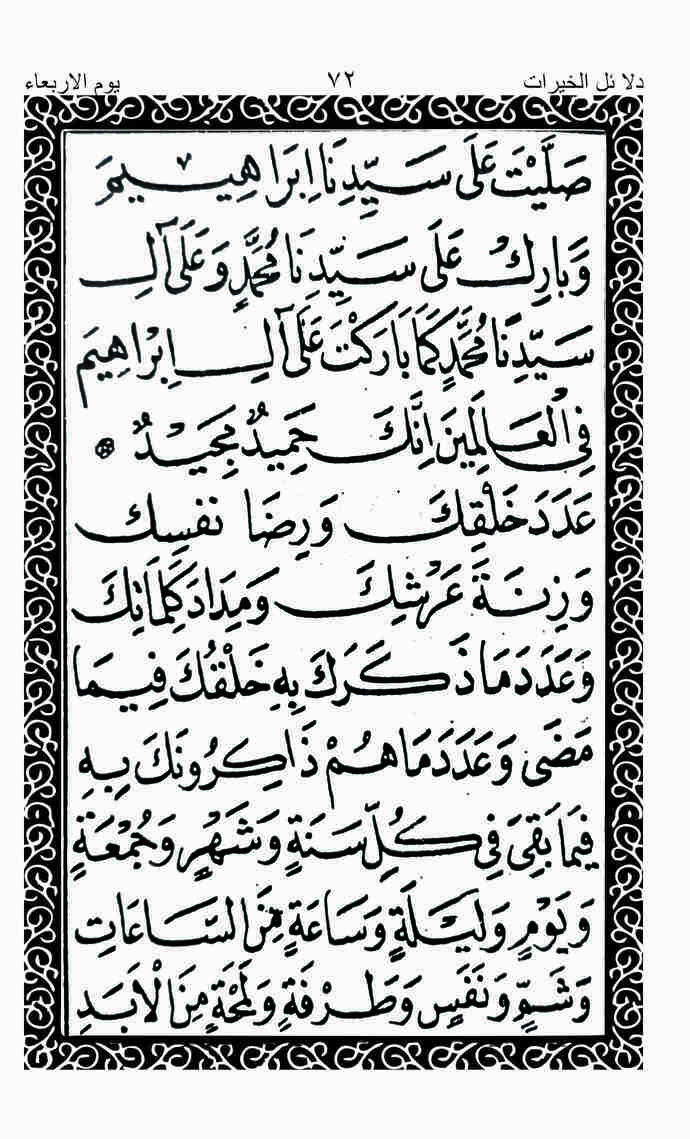 دلائل الخيرات ٧٢ يوم الاربعاء
صَلَّيْتَ عَلَى سَيِّدِنَا اِبْرَاهِيمَ
وَبَارِكْ عَلَى سَيِّدِنَا مُحَمَّدٍ وَعَلَى آلِ
سَيِّدِنَا مُحَمَّدٍ كَمَا بَارَكْتَ عَلَى آلِ اِبْرَاهِيمَ
فِي الْعَالَمِينَ اِنَّكَ حَمِيدٌ مَجِيْدٌ
عَدَدَ خَلْقِكَ وَرِضَا نَفْسِكَ
وَزِنَةَ عَرْشِكَ وَمِدَادَ كَلِمَاتِكَ
وَعَدَدَ مَا ذَكَرَكَ بِهِ خَلْقُكَ فِيمَا
مَضَى وَعَدَدَ مَا هُمْ ذَاكِرُونَكَ بِهِ
فِيمَا بَقِيَ فِي كُلِّ سَنَةٍ وَشَهْرٍ وَجُمْعَةٍ
وَيَوْمٍ وَلَيْلَةٍ وَسَاعَةٍ مِنَ السَّاعَاتِ
وَشَمٍّ وَنَفَسٍ وَطَرْفَةٍ وَلَمْحَةٍ مِنَ الْاَبَدِ